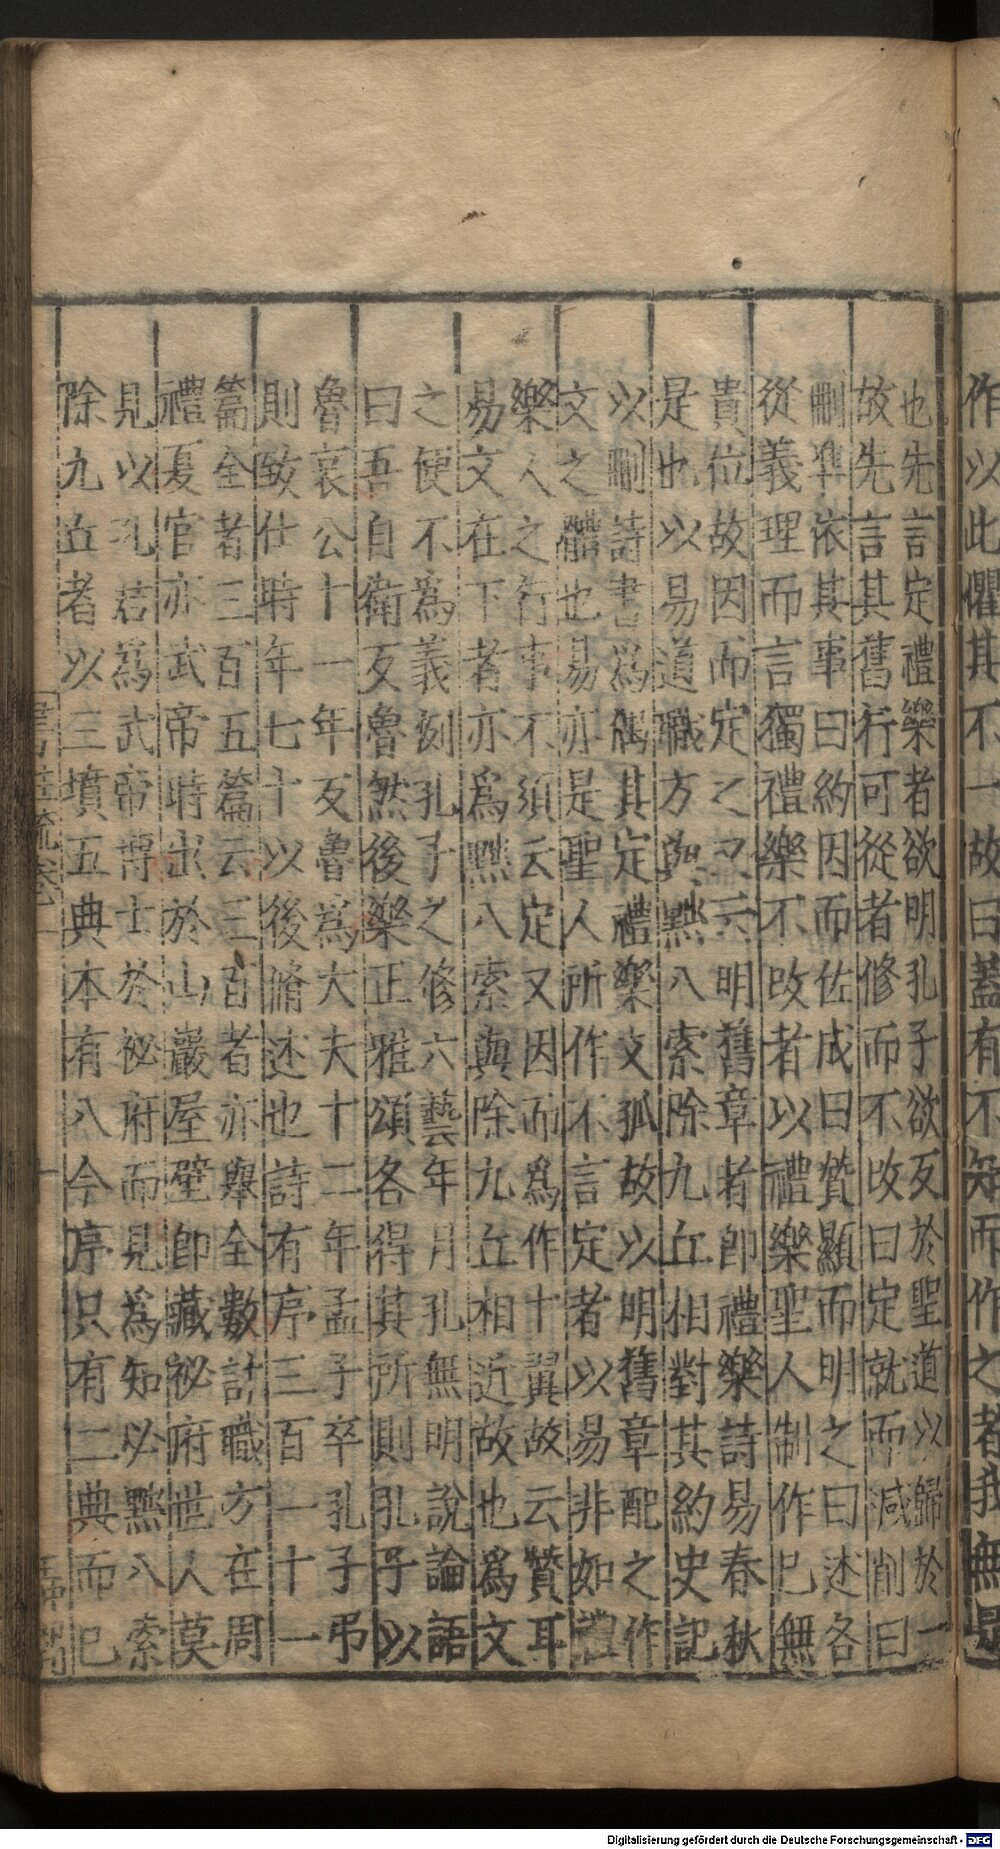 作以此懼其不一故曰蓋有不知而作之者我無是
也先言定禮樂者欲明孔子欲反於聖道以歸於一
故先言其舊行可從者修而不改曰定就而減削曰
刪準依其事曰約因而佐成曰贊顯而明之曰述各
從義理而言獨禮樂不改者以禮樂聖人制作已無
貴位故因而定之又云明舊章者即禮樂詩易春秋
是也以易道職方與黜八索除九丘相對其約史記
以刪詩書爲偶其定禮樂文孤故以明舊章配之作
文之體也易亦是聖人所作不言定者以易非如禮
樂人之行事不須云定又因而爲作十翼故云贊耳
易文在下者亦爲黜八索與除九丘相近故也爲文
之便不爲義例孔子之修六藝年月孔無明說論語
曰吾自衛反魯然後樂正雅頌各得其所則孔子以
魯哀公十一年反魯爲大夫十二年孟子卒孔子弔
則致仕時年七十以後脩述也詩有序三百一十一
篇全者三百五篇云三百者亦舉全數計職方在周
禮夏官亦武帝時出於山巖屋壁即藏祕府世人莫
見以孔君爲武帝博士於祕府而見爲知必黜八索
除九丘者以三墳五典本有八今序只有二典而已
Digitalisierung gefördert durch die Deutsche Forschungsgemeinschaft - DFG